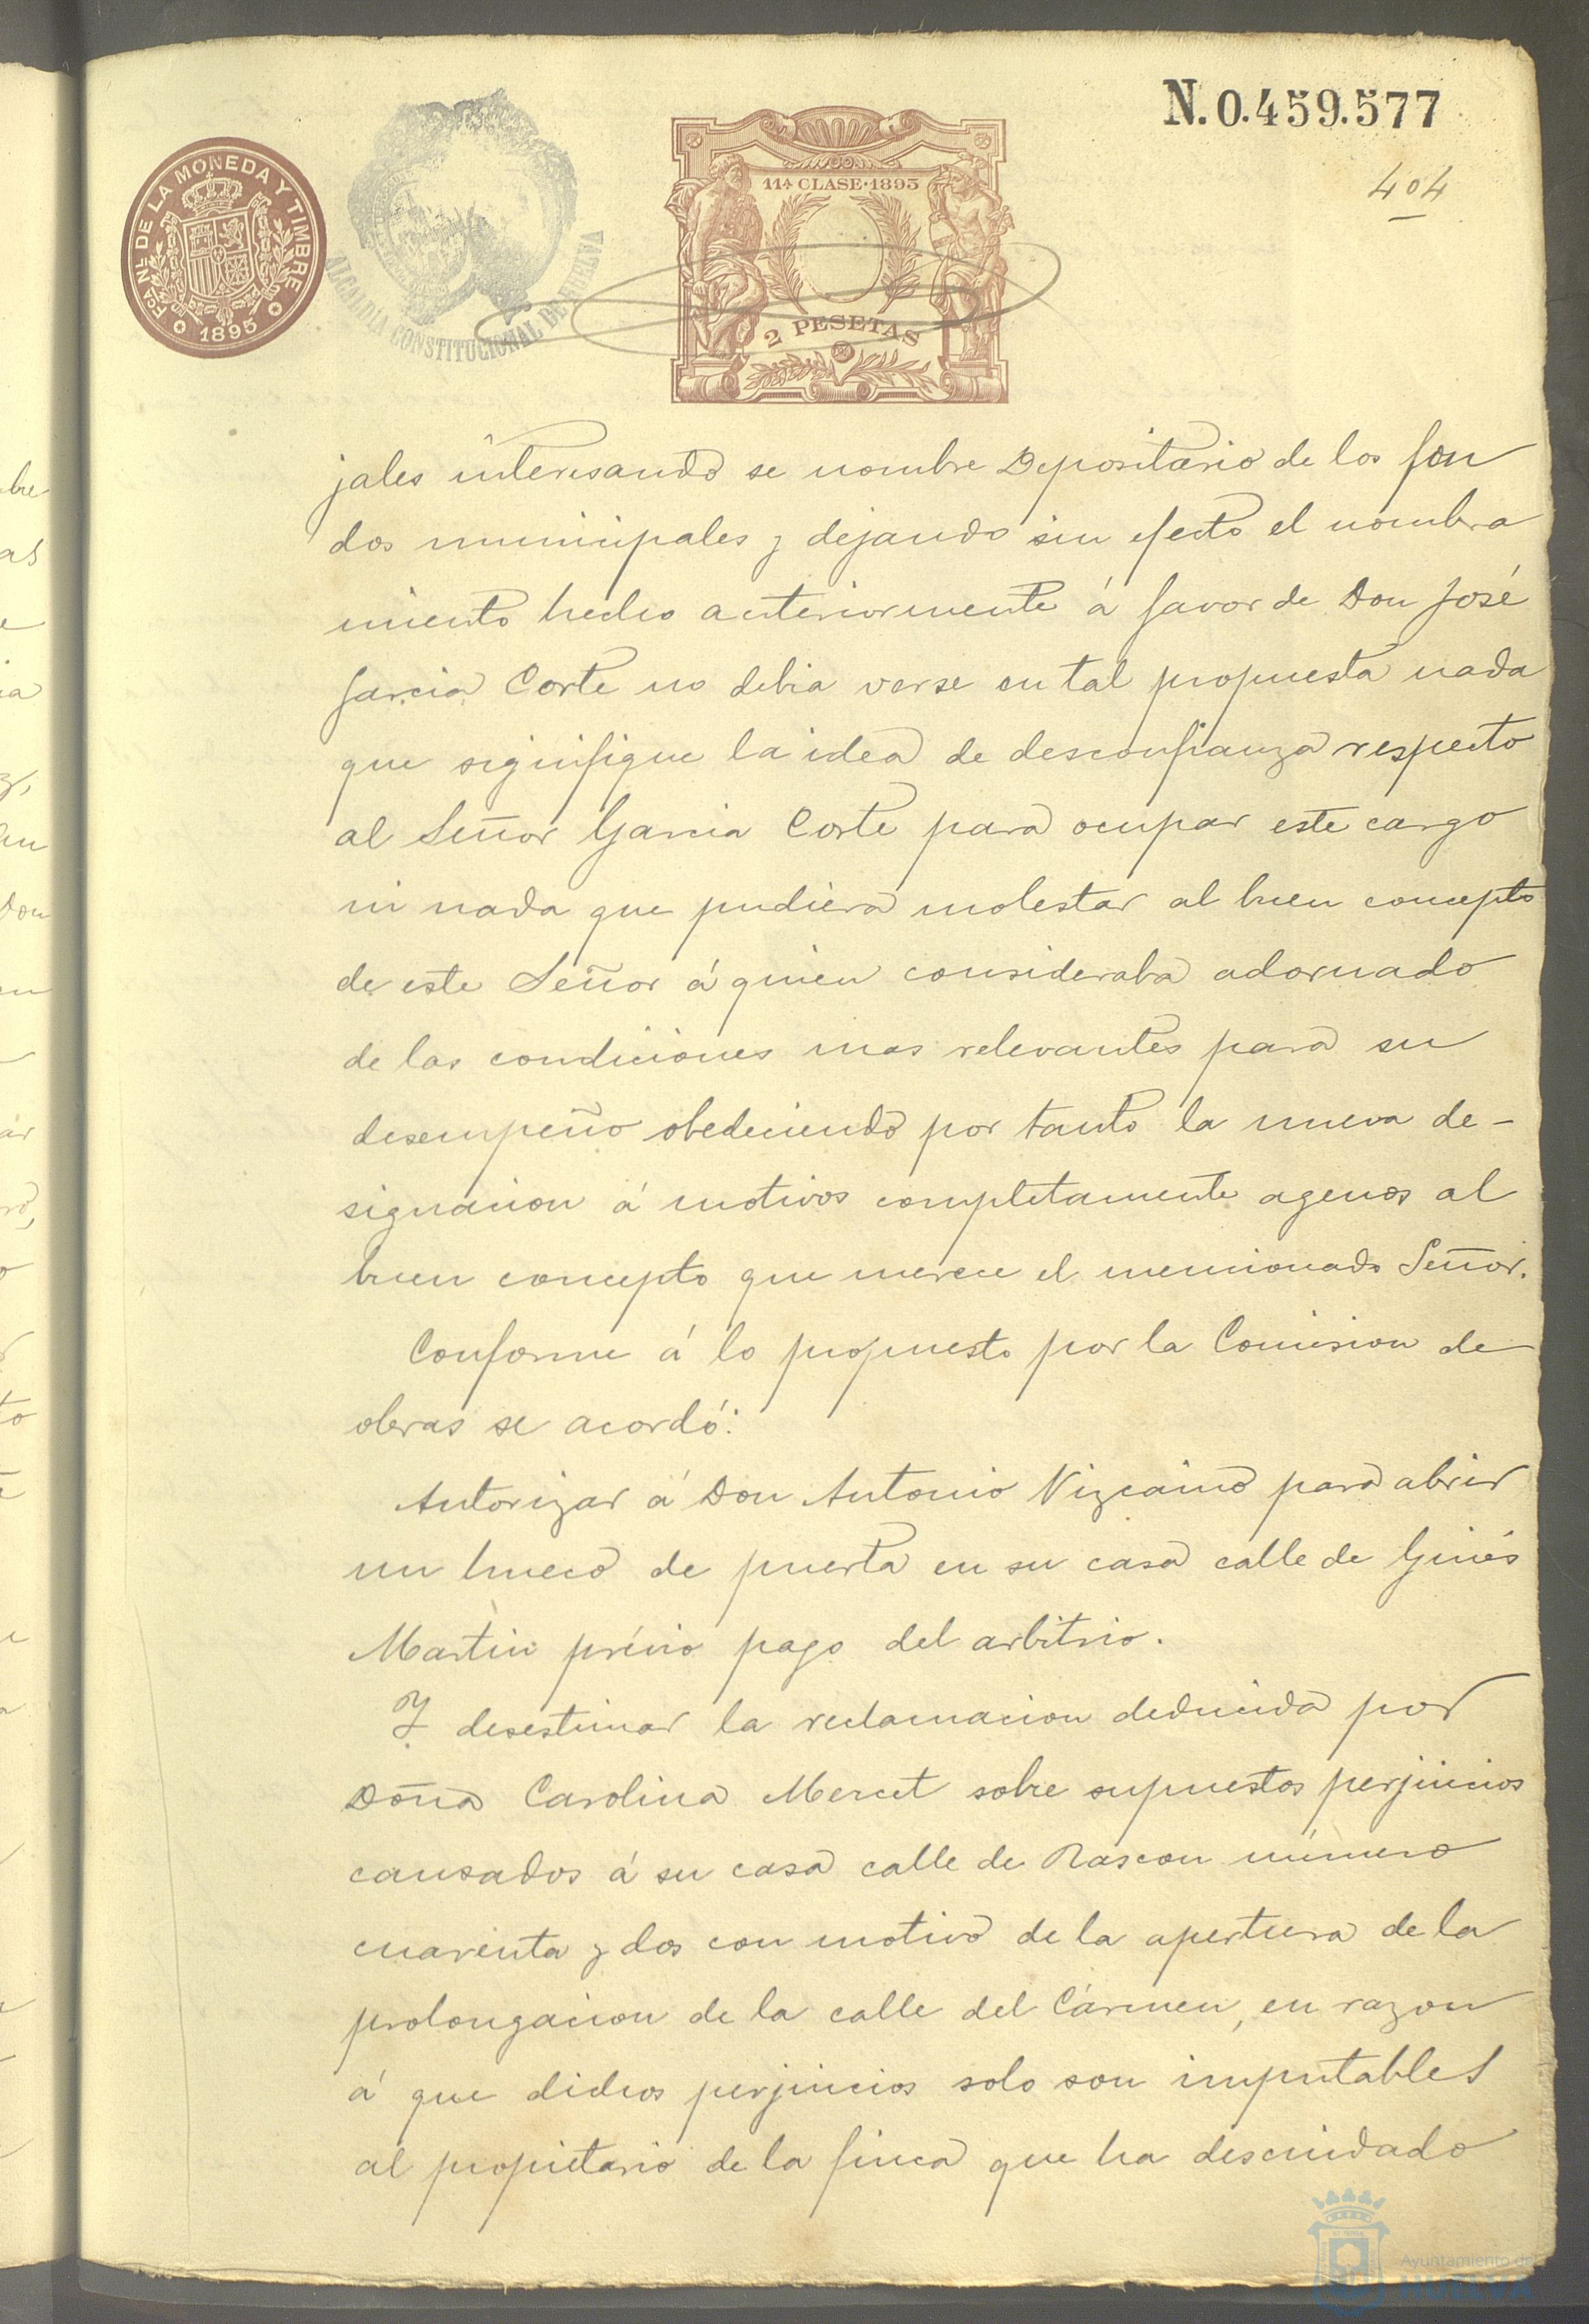 N. 0.459.577
404
FCA NL DE LA MONEDA Y TIMBRE
1895
ALCALDIA CONSTITUCIONAL DE HUELVA
11ª CLASE·1895
2 PESETAS
jales interesando se nombre Depositario de los fon
dos municipales y dejando sin efecto el nombra
miento hecho anteriormente á favor de Don José
García Corte no debia verse en tal propuesta nada
que siginifique la idea de desconfianza respecto
al Señor Garcia Corte para ocupar este cargo
ni nada que pudiera molestar al buen concepto
de este Señor á quien consideraba adornado
de las condiciones mas relevantes para su
desempeño obedeciendo por tanto la nueva de-
signacion á motivos completamente agenos al
buen concepto que merece el mencionado Señor.
Conforme á lo propuesto por la Comision de
obras se acordó:
Autorizar á Don Antonio Vizcaino para abrir
un hueco de puerta en su casa calle de Ginés
Martin prévio pago del arbitrio.
Y desestimar la reclamacion deducida por
Doña Carolina Mercet sobre supuestos perjuicios
causados á su casa calle de Rascon número
cuarenta y dos con motivo de la apertura de la
prolongacion de la calle del Cármen, en razon
á que dichos perjuicios solo son imputables
al propietario de la finca que ha descuidado
Ayuntamiento de
HUELVA